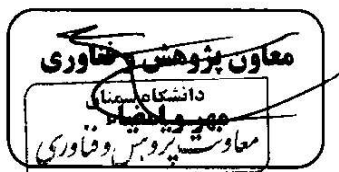 معاون پژوهش و فناوری
دانشگاه سمنان
مهر و امضاء
معاونت پژوهش و فناوری